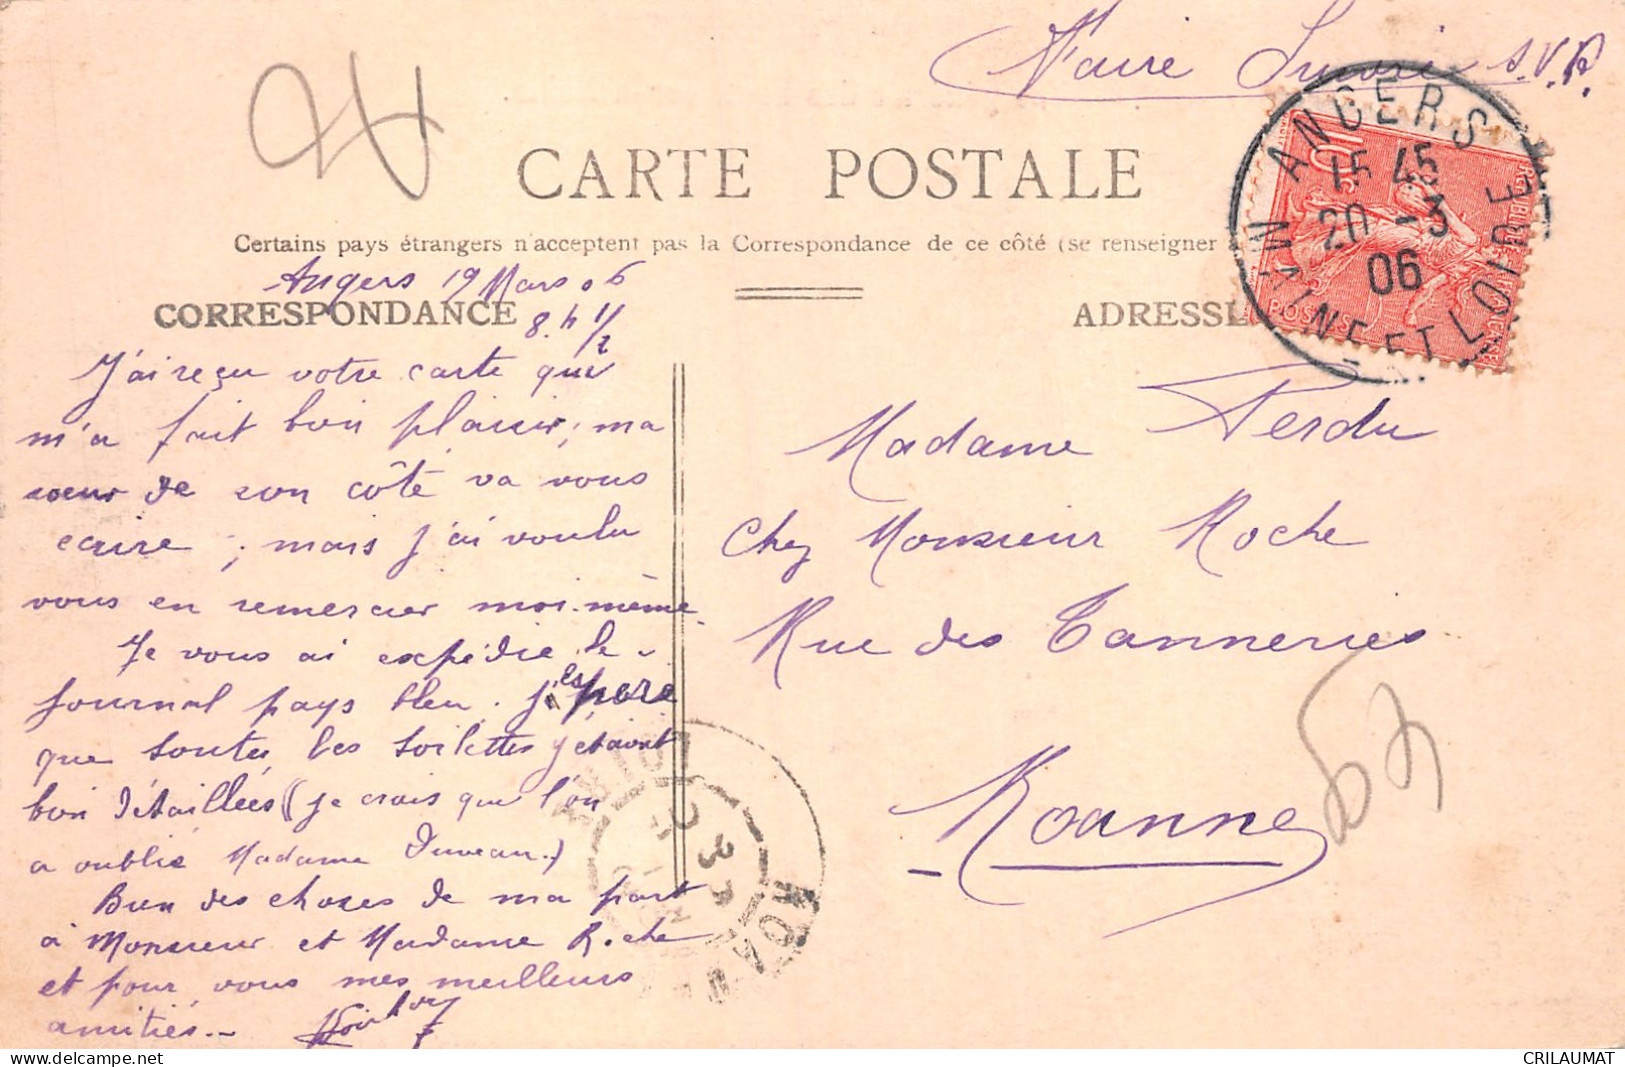 Faire Suivre S.V.P.
CARTE POSTALE
Certains pays étrangers n'acceptent pas la Correspondance de ce côté (se renseigner à
Angers 19 Mars 06
CORRESPONDANCE
8.h 1/2
ADRESSE
ANGERS
15 45
20 -3
06
MAINE ET LOIRE
POSTES
J'ai reçu votre carte qui
m'a fait bon plaisir; ma
soeur de son côté va vous
écrire; mais j'ai voulu
vous en remercier moi-même
Je vous ai expédié le
journal pays bleu. J'espère
que toutes les toilettes y étaient
bien détaillées (je crois que l'on
a oublié Madame Duveau.)
Bien des choses de ma part
à Monsieur et Madame Roche
et pour vous mes meilleurs
amitiés.-
Madame Perdu
Chez Monsieur Roche
Rue des Tanneries
Roanne
ROANNE
LOIRE
www.delcampe.net
CRILAUMAT